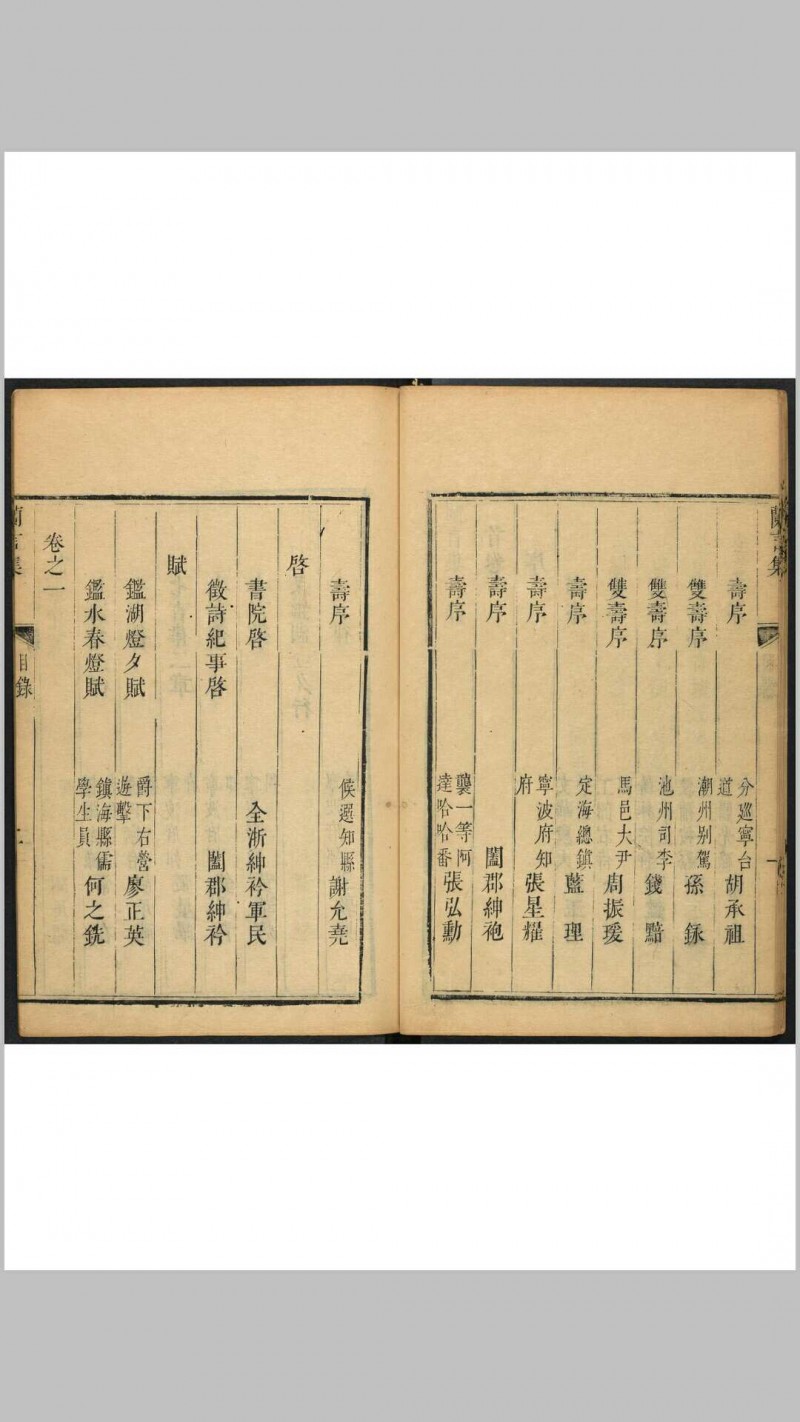 蘭言集
壽序 分巡寧台道 胡承祖
雙壽序 潮州别駕 孫銾
雙壽序 池州司李 錢黯
雙壽序 馬邑大尹 周振瑗
壽序 定海總鎮 藍理
壽序 寧波府知府 張星耀
壽序 闔郡紳袍
壽序 襲一等阿達哈哈番 張弘勳
壽序 候選知縣 謝允堯
啓
書院啓 全浙紳衿軍民
徵詩紀事啓 闔郡紳衿
賦
鑑湖燈夕賦 爵下右營遊擊 廖正英
鑑水春燈賦 鎮海縣儒學生員 何之銑
卷之一
蘭言集 目錄